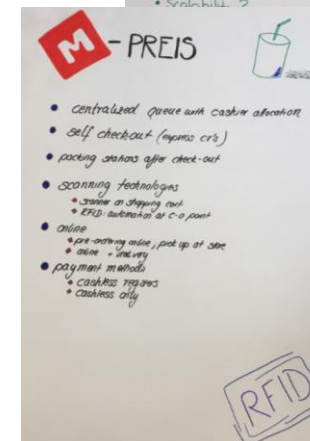 • Scalability ?
M - PREIS
• centralized queue with cashier allocation
• self checkout (express c/o's)
• packing stations after check-out
• scanning technologies
• scanner on shopping cart
• RFID: automation at c-o point
• online
• pre-ordering online, pick up at store
• online + delivery
• payment methods
• cashless registers
• cashless only
RFID